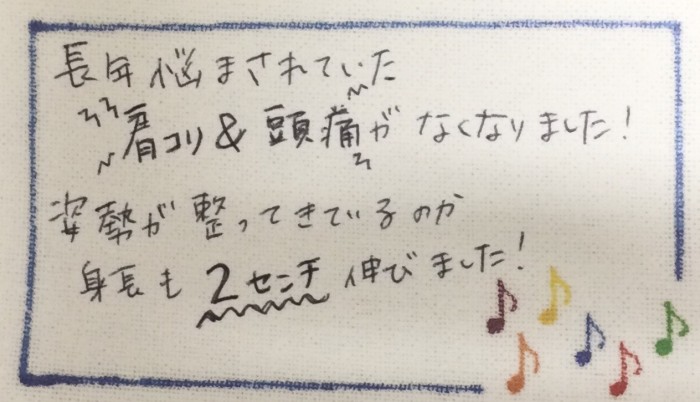 長年悩まされていた
肩コリ&頭痛がなくなりました!
姿勢が整ってきているのか
身長も2センチ伸びました!